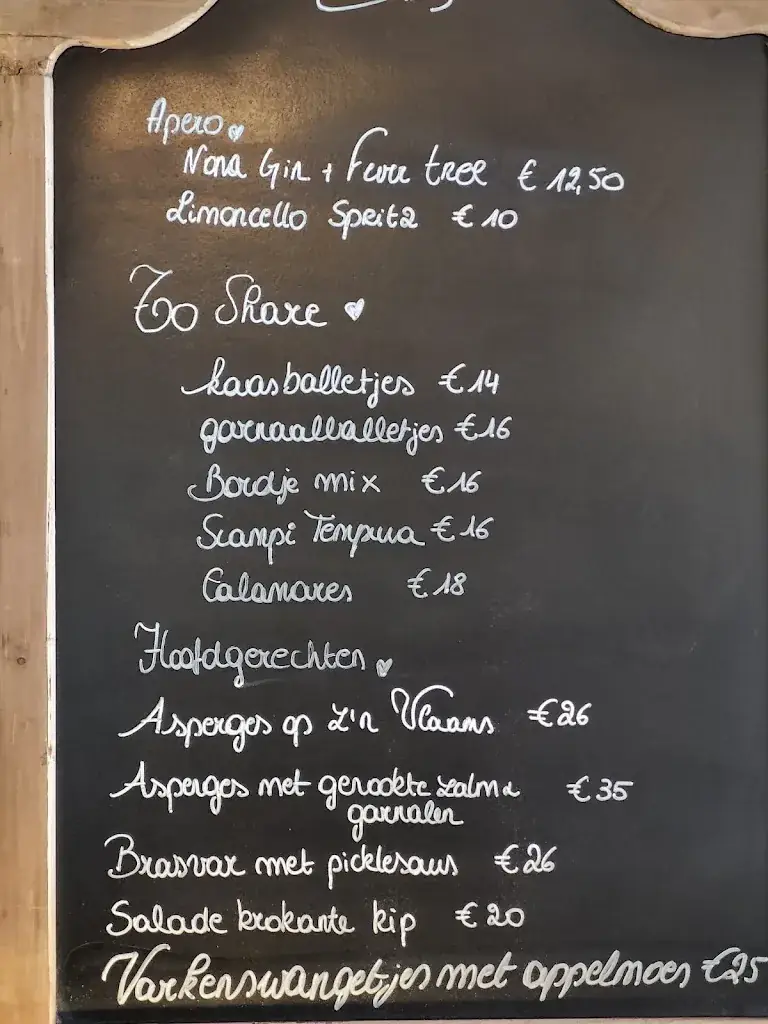 Apero
Nona Gin + Fever tree € 12,50
Limoncello Spritz € 10
To Share
kaasballetjes € 14
garnaalballetjes € 16
Bordje mix € 16
Scampi Tempura € 16
Calamares € 18
Hoofdgerechten
Asperges op z'n Vlaams € 26
Asperges met gerookte zalm &
garnalen € 35
Brasvar met picklesaus € 26
Salade krokante kip € 20
Varkenswangetjes met appelmoes € 25